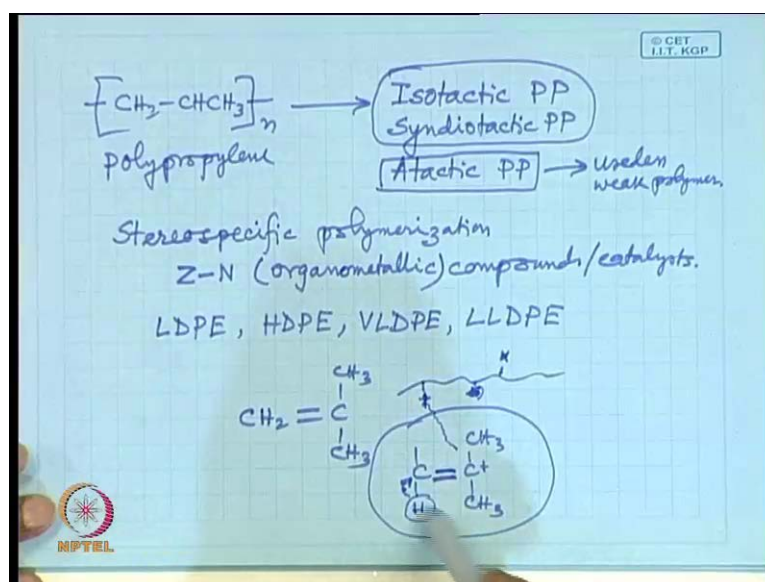 © CET
I.I.T. KGP
[CH₂–CHCH₃]n → Isotactic PP
Syndiotactic PP
polypropylene
Atactic PP →
weak polymer
Stereospecific polymerization
Z–N (organometallic) compounds/catalysts.
LDPE, HDPE, VLDPE, LLDPE
CH₃
CH₂ = C
CH₃
CH₃
C = C+
H
CH₃
NPTEL